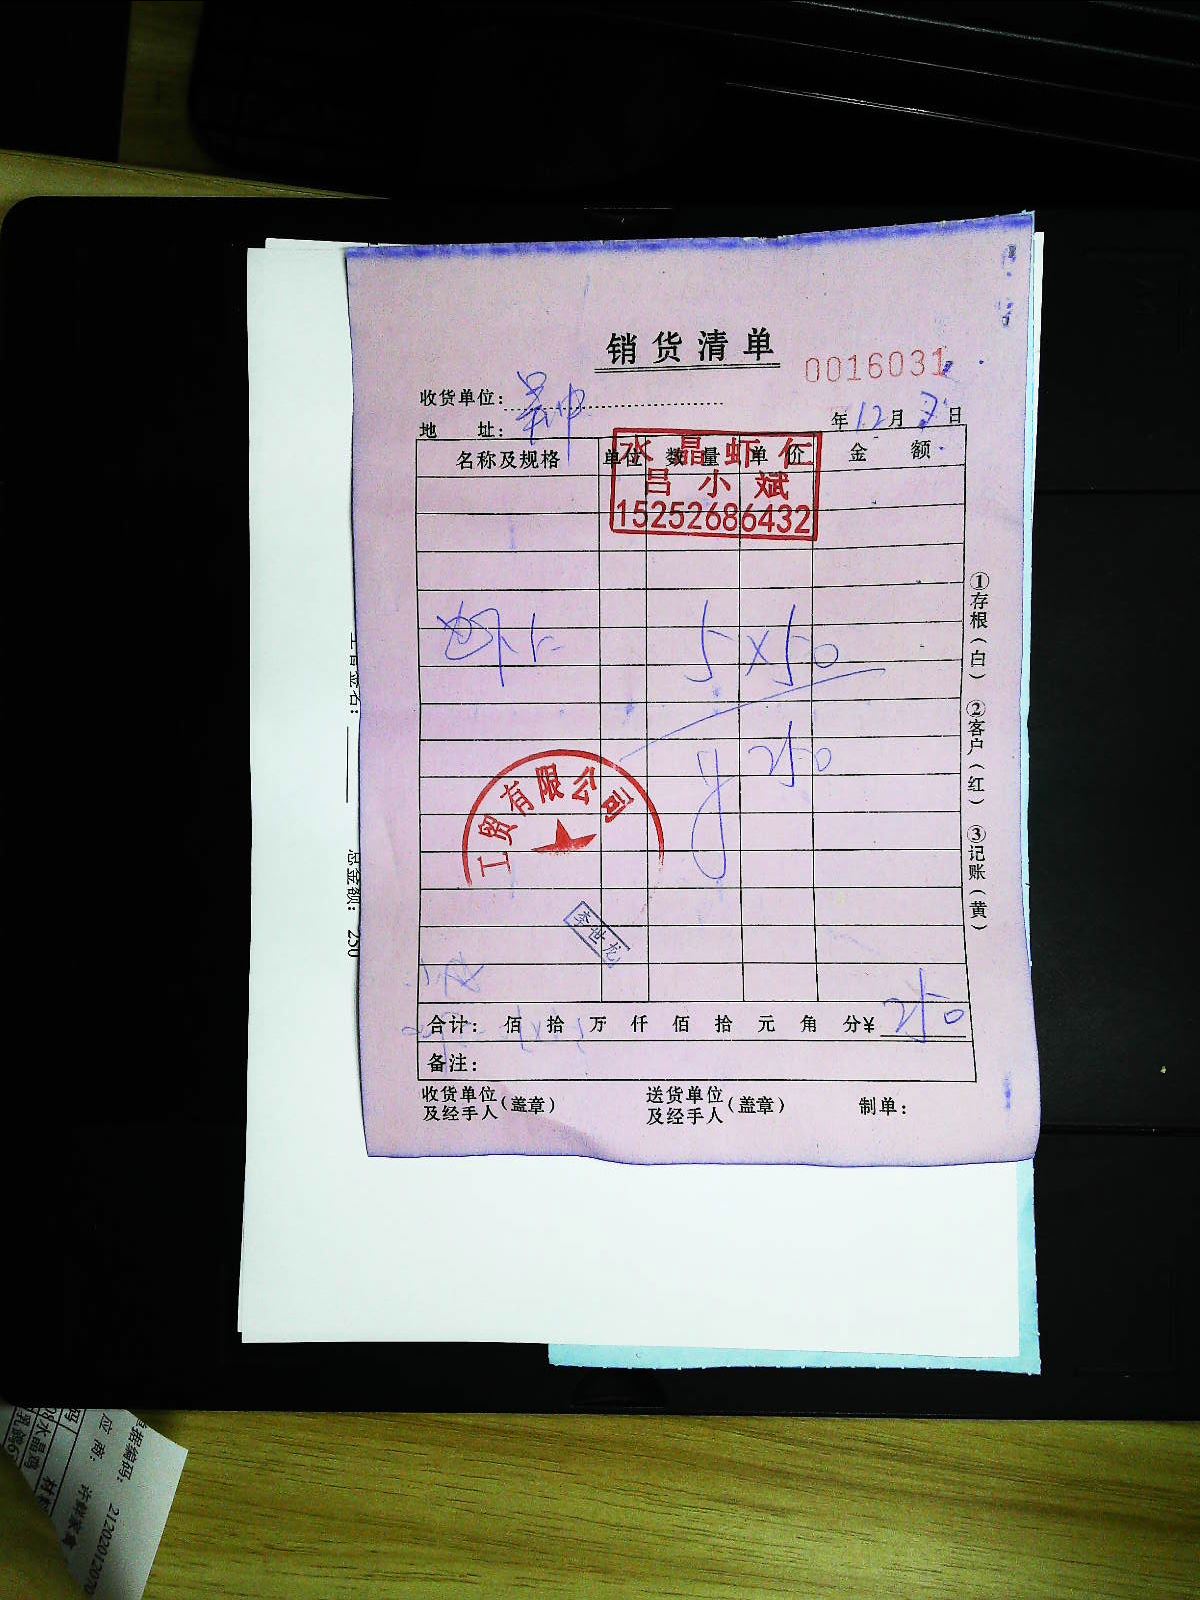 销货清单
0016031
收货单位：吴中
地 址：
年12月7日
名称及规格 单位 数量 单价 金额
水晶虾仁
吕小斌
15252686432
5×50
¥250
工贸有限公司
李世龙
合计： 佰 拾 万 仟 佰 拾 元 角 分¥ 250
备注：
收货单位及经手人（盖章）
送货单位及经手人（盖章）
制单：
①存根（白） ②客户（红） ③记账（黄）
总金额： 250
据编码： 2120201207
应 商：
水晶鸡